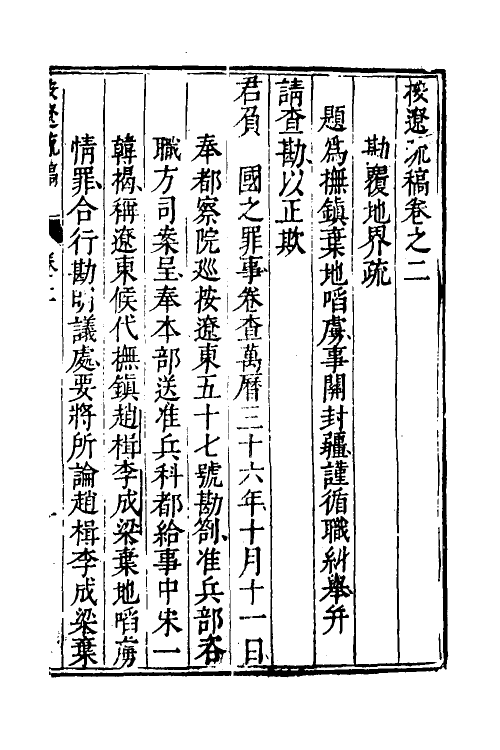 按遼疏稿卷之二
勘覆地界疏
題爲撫鎮棄地啗虜事關封疆謹循職糾舉并
請查勘以正欺
君負 國之罪事卷查萬曆三十六年十月十一日
奉都察院巡按遼東五十七號勘劄准兵部咨
職方司案呈奉本部送准兵科都給事中宋一
韓揭稱遼東候代撫鎮趙楫李成梁棄地啗虜
情罪合行勘明議處要將所論趙楫李成梁棄
按遼疏稿 卷二 一